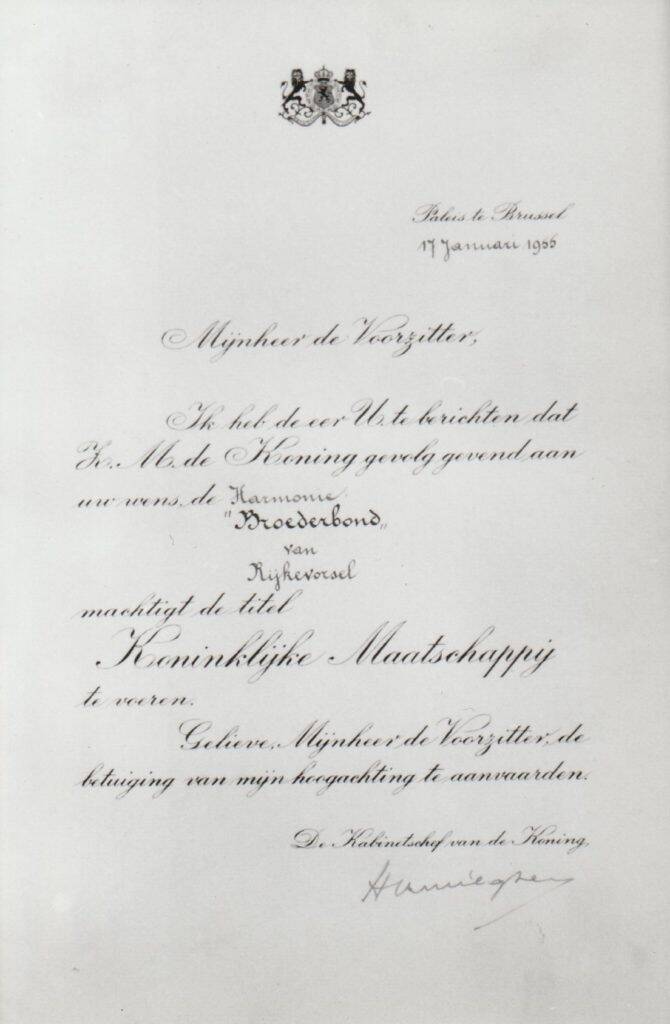 Paleis te Brussel
17 Januari 1955
Mijnheer de Voorzitter,
Ik heb de eer U te berichten dat
Z. M. de Koning gevolg gevend aan
uw wens, de Harmonie
"Broederbond"
van
Rijkevorsel
machtigt de titel
Koninklijke Maatschappij
te voeren.
Gelieve, Mijnheer de Voorzitter, de
betuiging van mijn hoogachting te aanvaarden.
De Kabinetschef van de Koning,